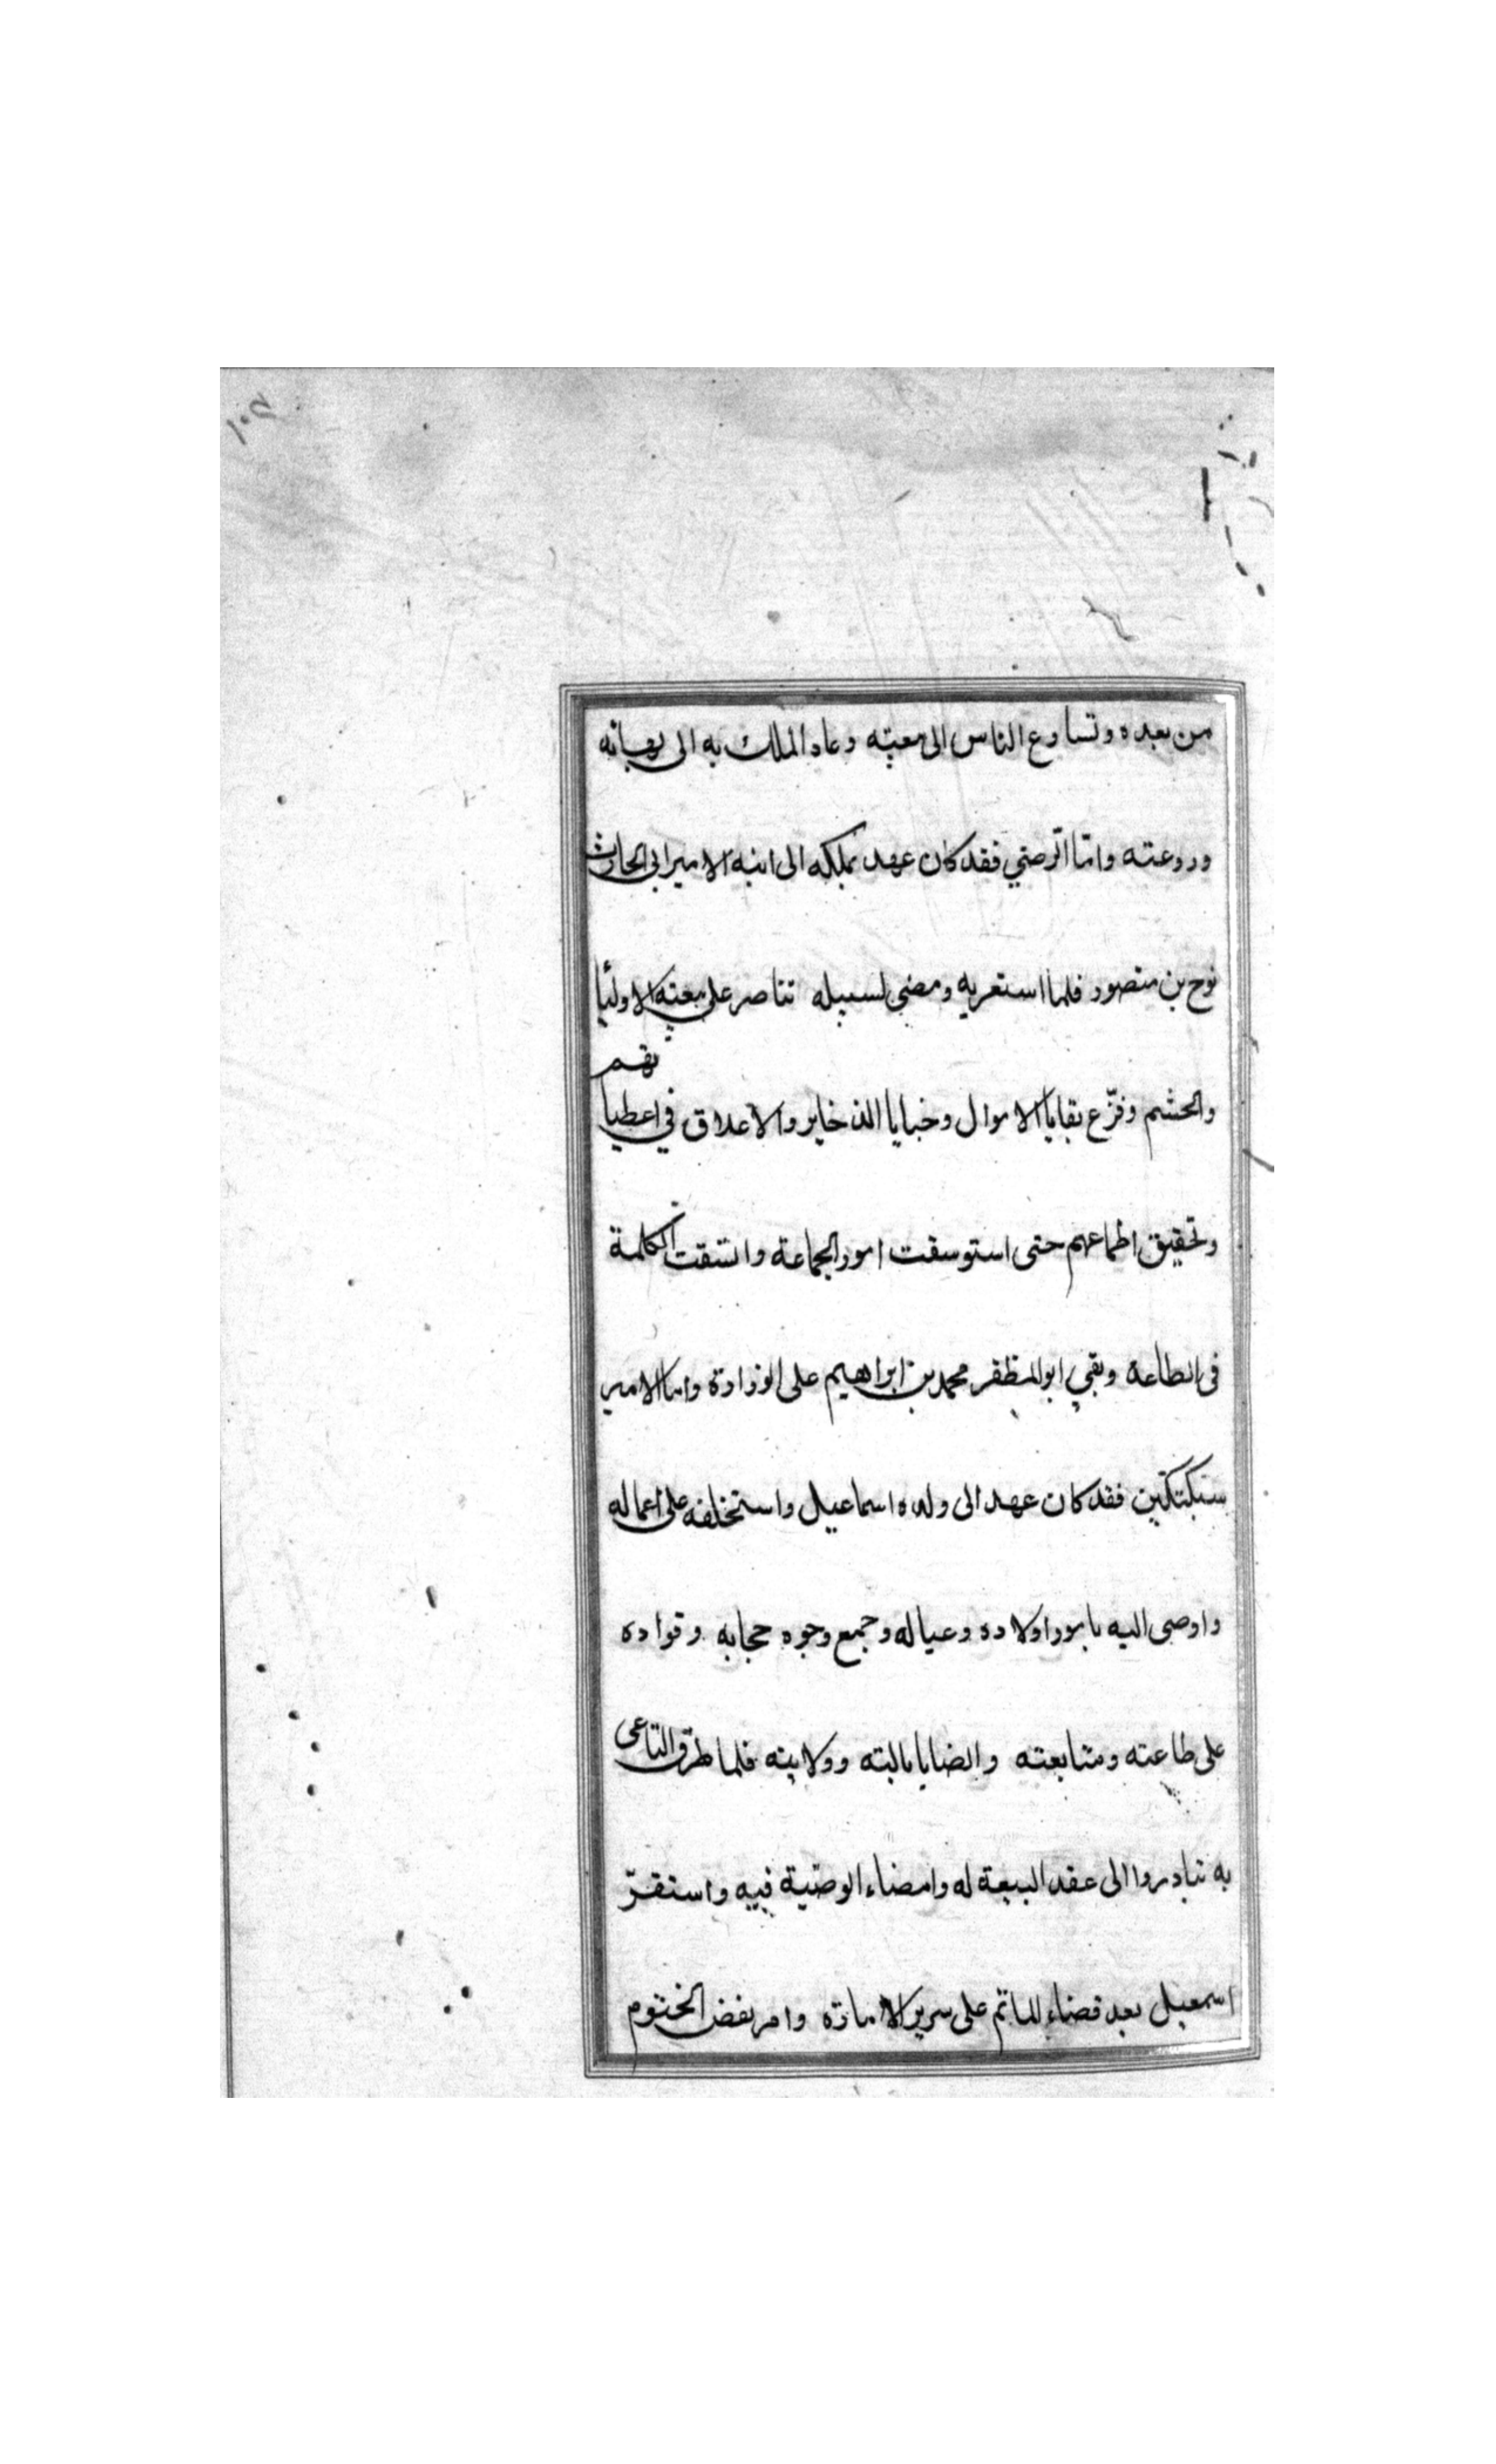 من بعده وتسارع الناس الى معيته وعاد الملك به الى بهائه
وروعته وامّا الرّضيّ فقد كان عهد بملكه الى ابنه الامير ابى الحارث
نوح بن منصور فلما استعربه ومضى لسبيله تناصر على بيعته الاوليا
والحشم وفرّع بقايا الاموال وخبايا الذخاير والاعلاق في اعطيا
تهم
وتحقيق اطماعهم حتى استوسقت امور الجماعة واتسقت الكلمة
فى الطاعة وبقي ابو المظفر محمد بن ابراهيم على الوزارة واما الامير
سبكتكين فقد كان عهد الى ولده اسماعيل واستخلفه على اعماله
واوصى اليه بامور اولاده وعياله وجمع وجوه حجابه وقواده
على طاعته ومتابعته والضايا بالبته وولايته فلما طرق النّاعى
به تبادروا الى عقد البيعة له وامضاء الوصّية فيه واستقرّ
اسمعيل بعد قضاء الماتم على سرير الامارة وامر بفض الختوم